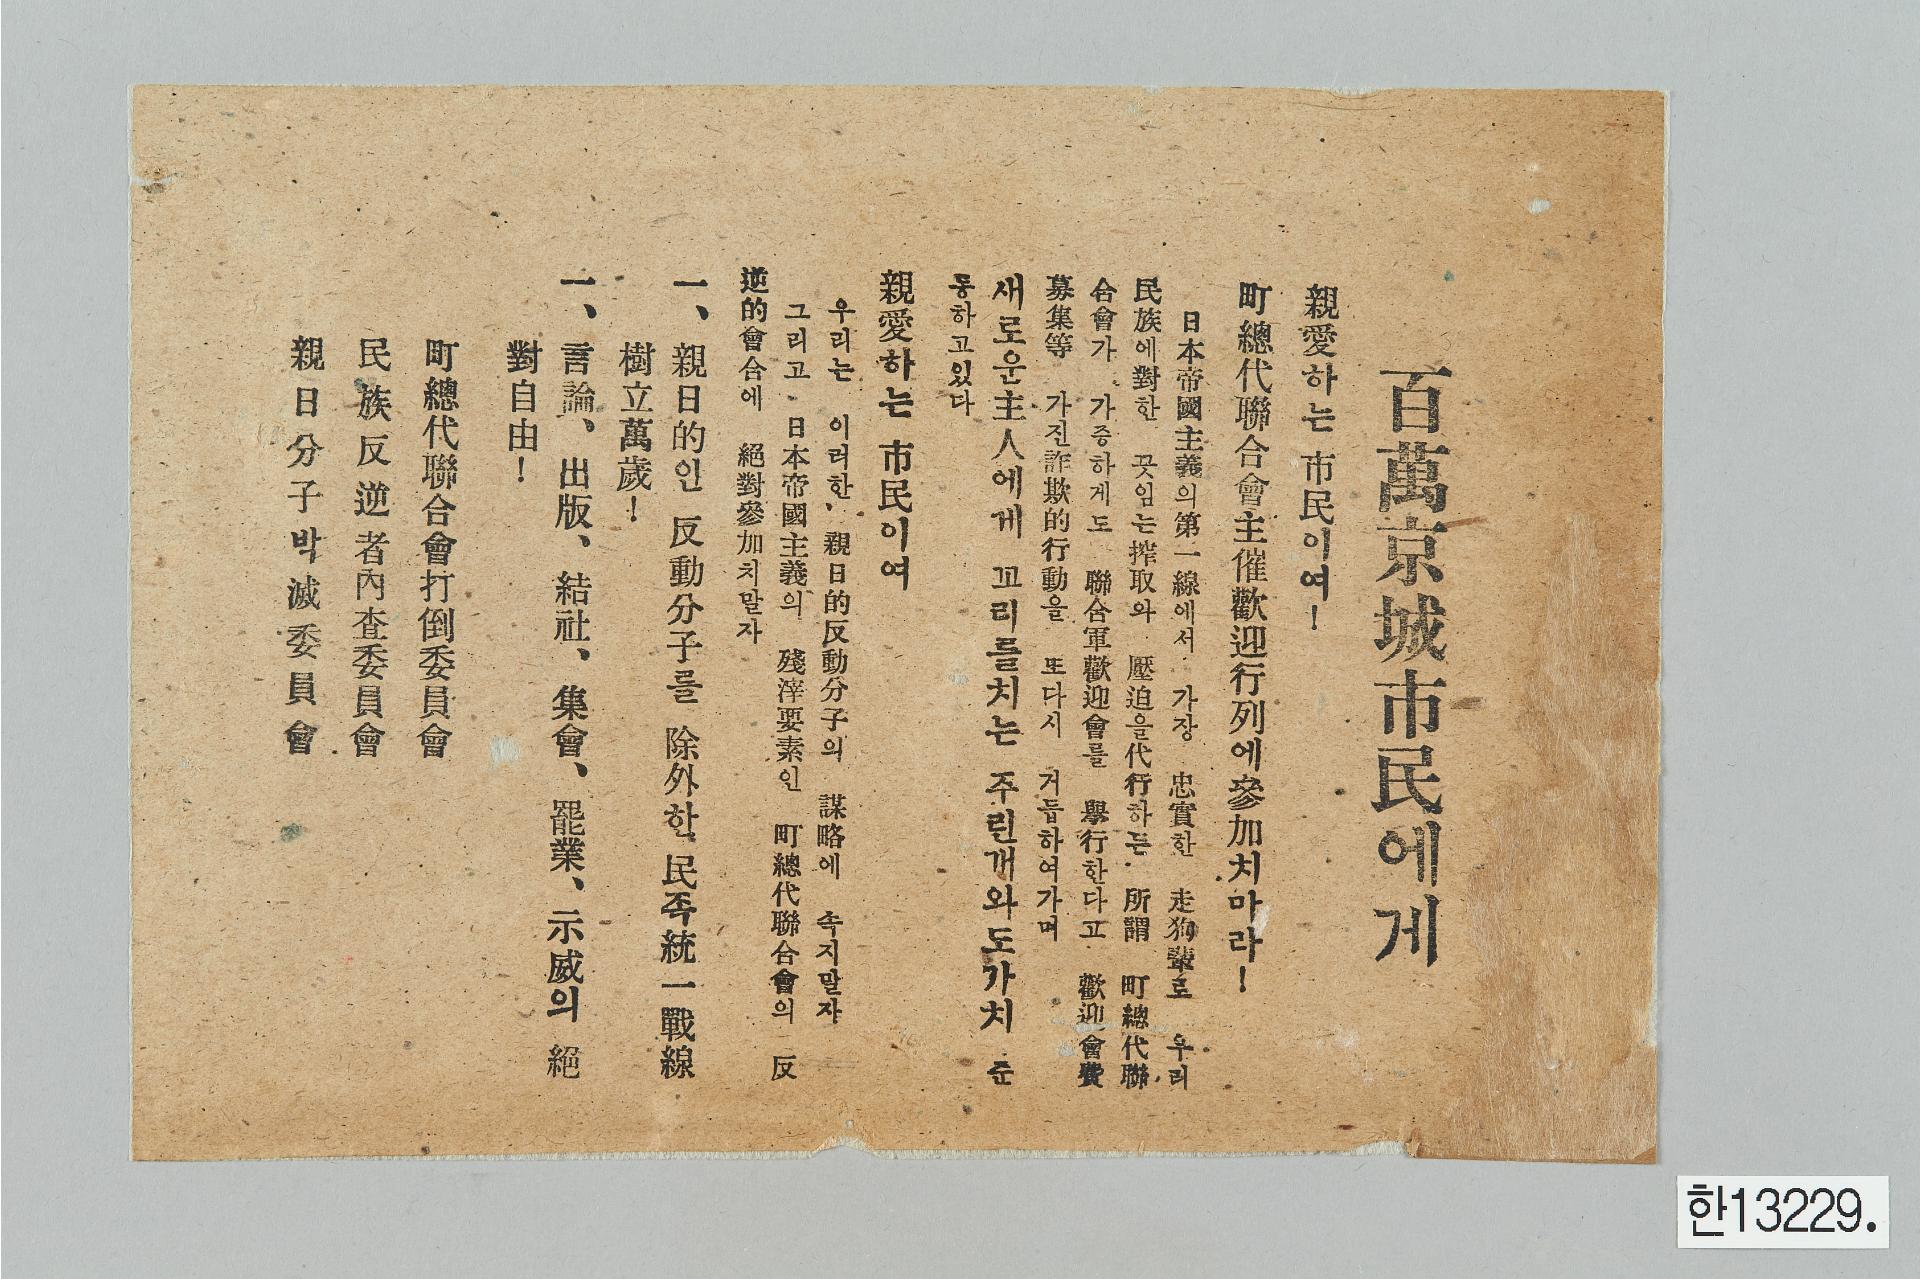 百萬京城市民에게
親愛하는 市民이여!
町總代聯合會主催歡迎行列에參加치마라!
日本帝國主義의第一線에서 가장 忠實한 走狗輩로 우리
民族에對한 끗임는搾取와 壓迫을代行하든 所謂 町總代聯
合會가 가증하게도 聯合軍歡迎會를 擧行한다고 歡迎會費
募集等 가진詐欺的行動을 또다시 거듭하여가며
새로운主人에게 꼬리를치는 주린개와도가치 준
동하고있다
親愛하는 市民이여
우리는 이러한 親日的反動分子의 謀略에 속지말자
그리고 日本帝國主義의 殘滓要素인 町總代聯合會의 反
逆的會合에 絕對參加치말자
一、親日的인 反動分子를 除外한 民족統一戰線
樹立萬歲!
一、言論、出版、結社、集會、罷業、示威의 絕
對自由!
町總代聯合會打倒委員會
民族反逆者內査委員會
親日分子박滅委員會
한13229.